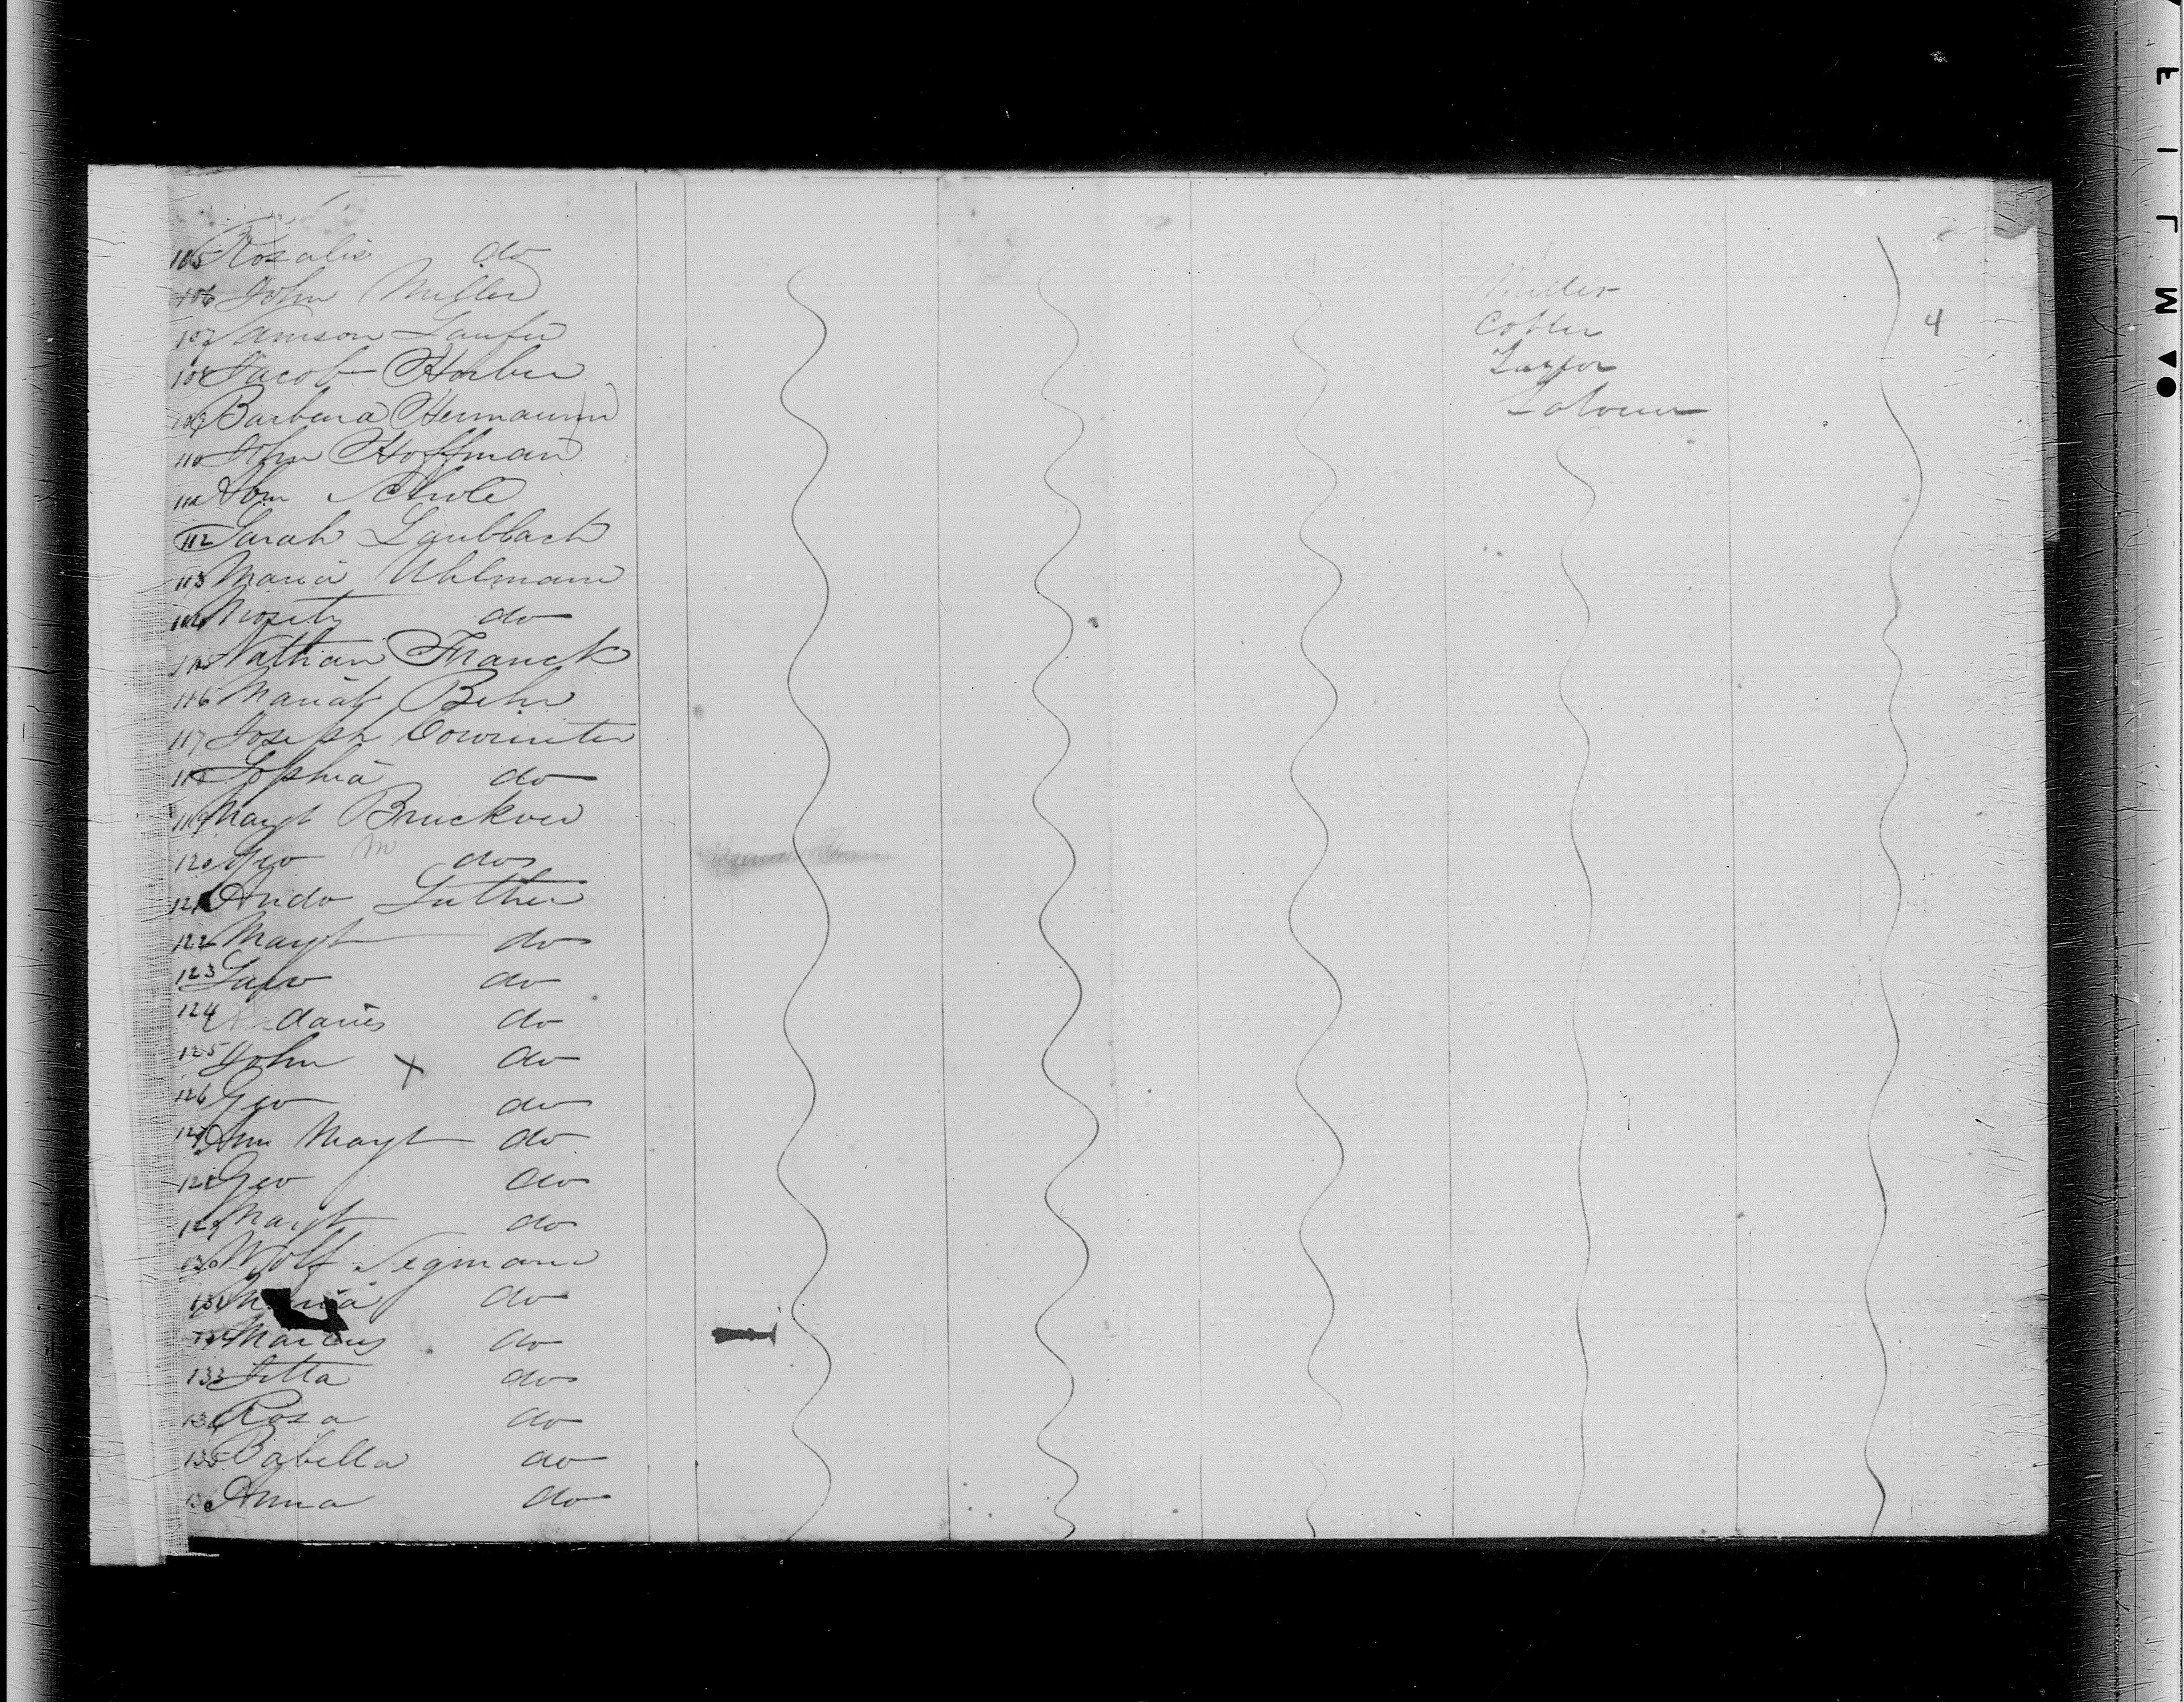 105 Rosalie do
106 John Miller Miller
107 Samson Laufer Cobler 4
108 Jacob Harber Taylor
109 Barbara Hermann Laborer
110 John Hoffman
111 Abm Schole
112 Sarah Laubbach
113 Maria Uhlmann
114 Moritz do
115 Nathan Franck
116 Mariah Behr
117 Joseph
118 Sophia do
119 Margt Bruckner
120 Geo do
121 Andw Luther
122 Margt do
123 do
124 do
125 John X do
126 Geo do
127 Ann Margt do
128 Geo do
129 Margt do
130 Wolf Segmann
131 Maria do
132 Marcus do
133 Jetta do
134 Rosa do
135 Babella do
136 Anna do
FILM